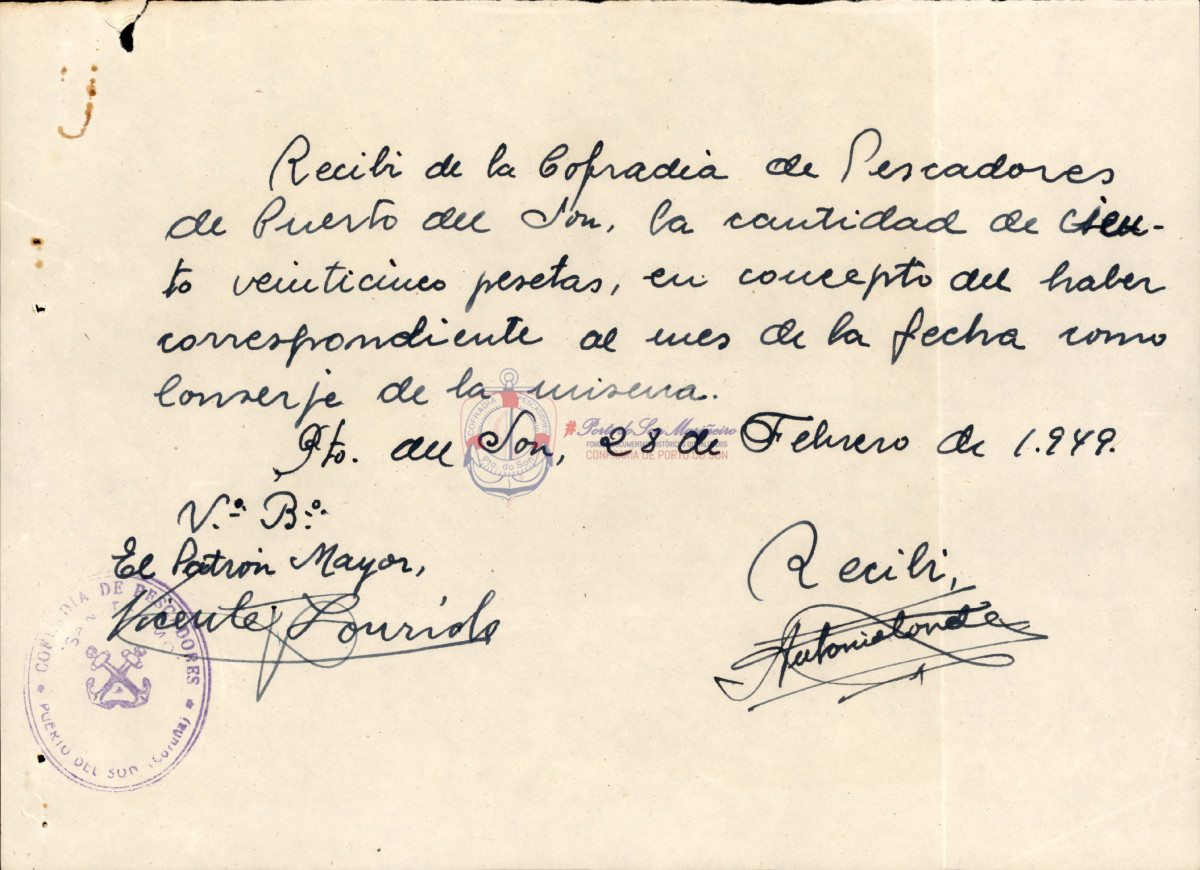 Recibi de la Cofradia de Pescadores
de Puerto del Son, la cantidad de cien-
to veinticinco pesetas, en concepto del haber
correspondiente al mes de la fecha como
Conserje de la misma.
Pto. del Son, 28 de Febrero de 1.949.
V.º B.º
El Patrón Mayor,
Vicente Lourido
Recibi,
Antonio
COFRADIA DE PESCADORES
SAN
PUERTO DEL SON (Coruña)
COFRADIA PESCADORES
Pto. do Son
#Porto do Son Mariñeiro
CONFRARIA DE PORTO DO SON